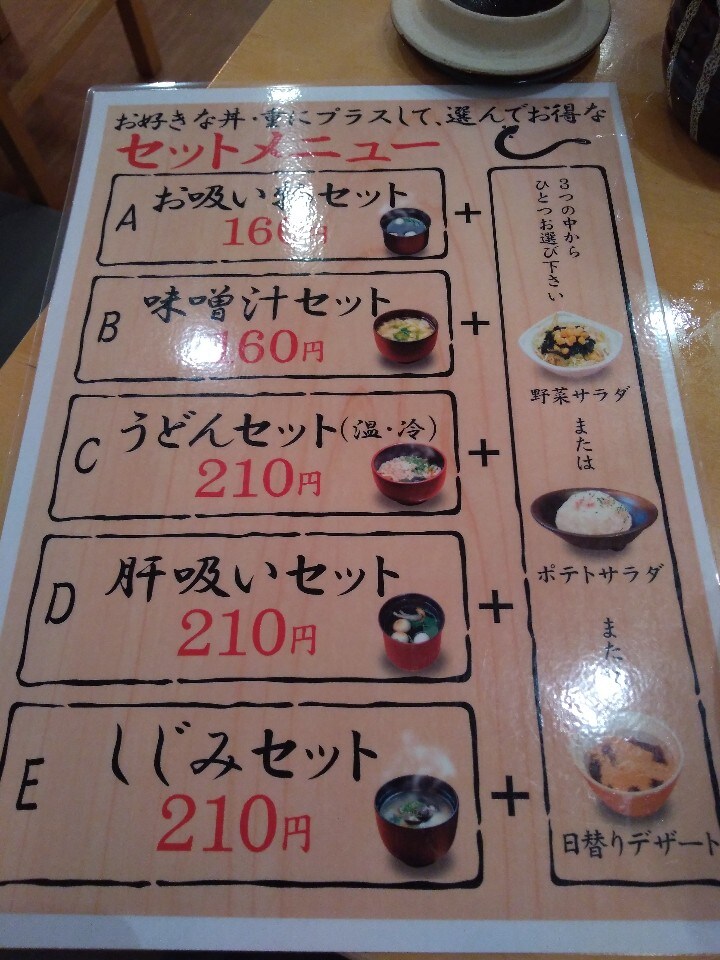 お好きな丼・重にプラスして、選んでお得な
セットメニュー
A
お吸い物セット
160円
+
B
味噌汁セット
160円
+
C
うどんセット(温・冷)
210円
+
D
肝吸いセット
210円
+
E
しじみセット
210円
+
3つの中から
ひとつお選び下さい
野菜サラダ
または
ポテトサラダ
また
日替りデザート